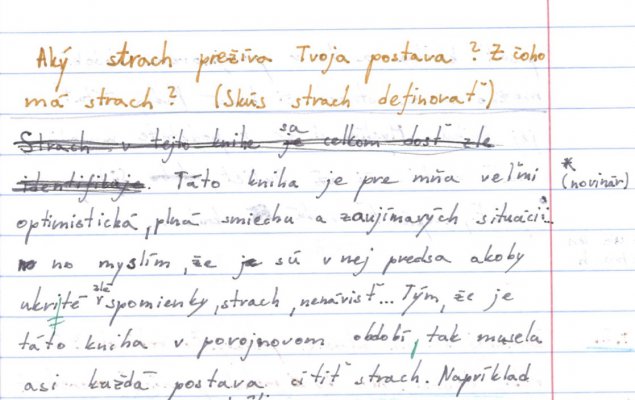 Aký strach prežíva Tvoja postava? Z čoho
má strach? (Skús strach definovať.)
Strach v tejto knihe je sa celkom dosť zle
identifikuje. Táto kniha je pre mňa veľmi
* (novinár)
optimistická, plná smiechu a zaujímavých situácií
no myslím, že je sú v nej predsa akoby
ukrité zlé spomienky, strach, nenávisť... Tým, že je
táto kniha v povojnovom období, tak musela
asi každá postava cítiť strach. Napríklad